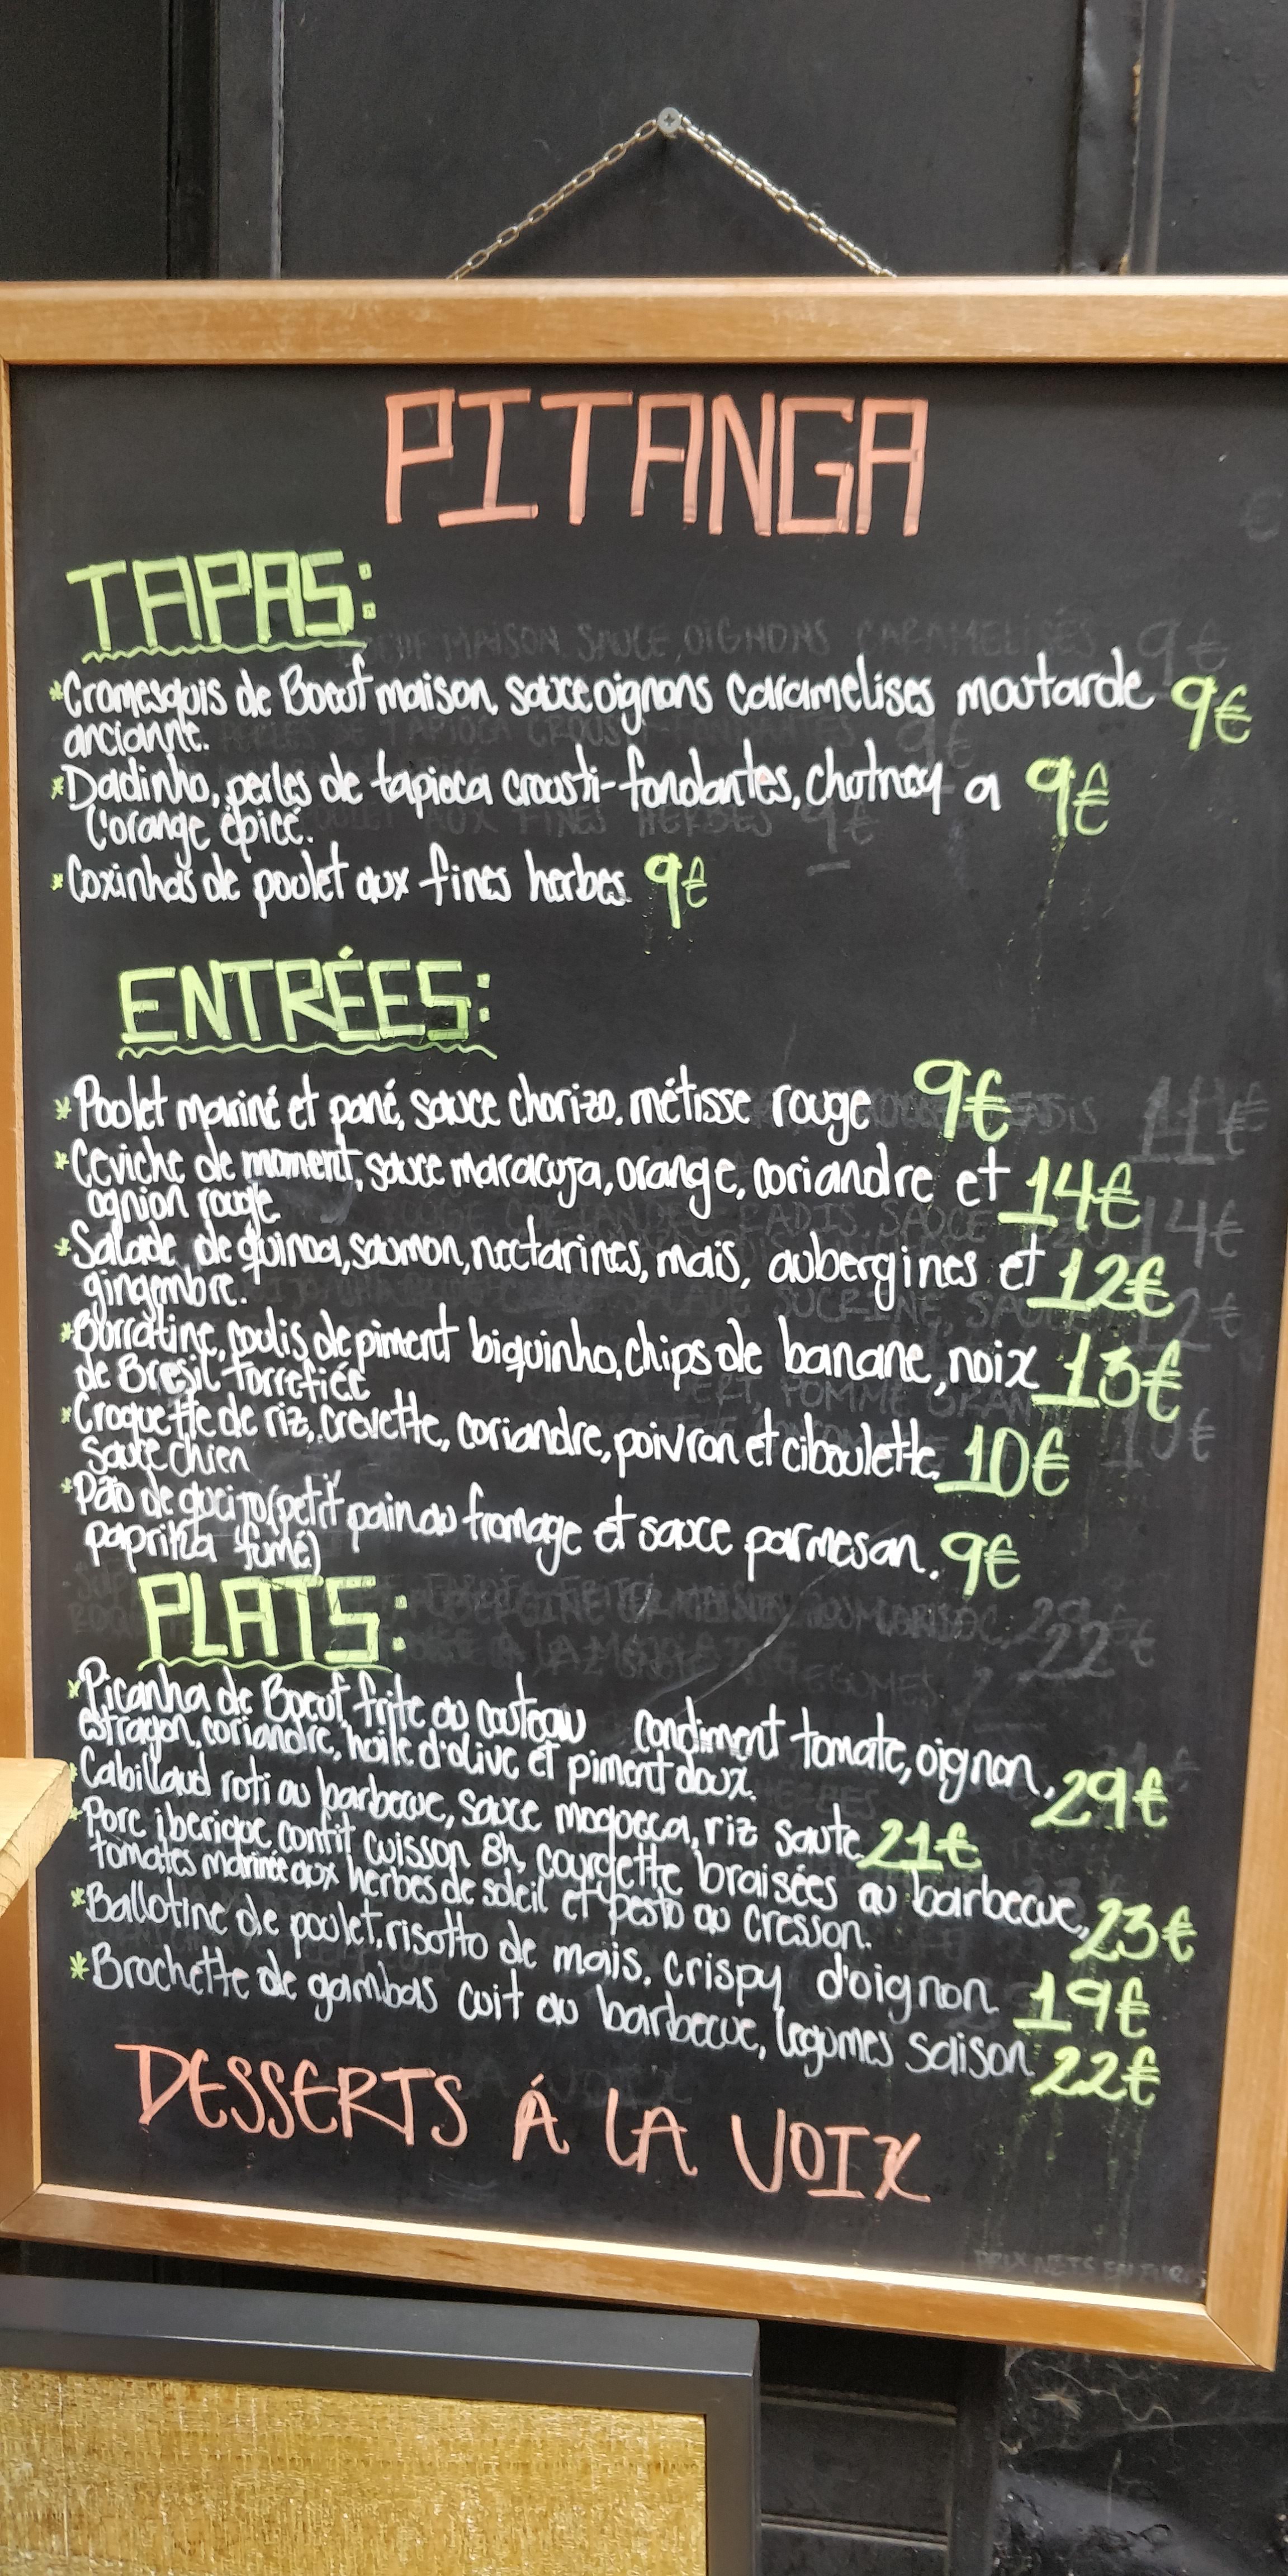 PITANGA
TAPAS:
*Cromesquis de Boeuf maison, sauce oignons caramelises moutarde 9€
ancianne.
*Dadinho, perles de tapioca crousti-fondantes, chutney a 9€
l'orange épice.
*Coxinhas de poulet aux fines herbes 9€
ENTRÉES:
*Poulet mariné et pané, sauce chorizo, métisse rouge 9€
*Ceviche de moment, sauce maracuja, orange, coriandre et 14€
ognion rouge
*Salade de quinoa, saumon, nectarines, maïs, aubergines et 12€
gingembre.
*Burratine, coulis de piment biquinho, chips de banane, noix 13€
de Bresil torrefiée
*Croquette de riz, crevette, coriandre, poivron et ciboulette, 10€
sauce chien
*Pão de queijo (petit pain au fromage et sauce parmesan. 9€
paprika fumé)
PLATS:
*Picanha de Boeuf, frite au couteau condiment tomate, oignon, 29€
estragon, coriandre, huile d'olive et piment doux.
*Cabillaud roti au barbecue, sauce moqueca, riz saute 21€
*Porc iberique confit cuisson 8h, courgette braisées au barbecue, 23€
tomates marinée aux herbes de soleil et pesto au cresson.
*Ballotine de poulet, risotto de mais. crispy d'oignon 19€
*Brochette de gambas cuit au barbecue, legumes saison 22€
DESSERTS Á LA VOIX
PRIX NETS EN EURO